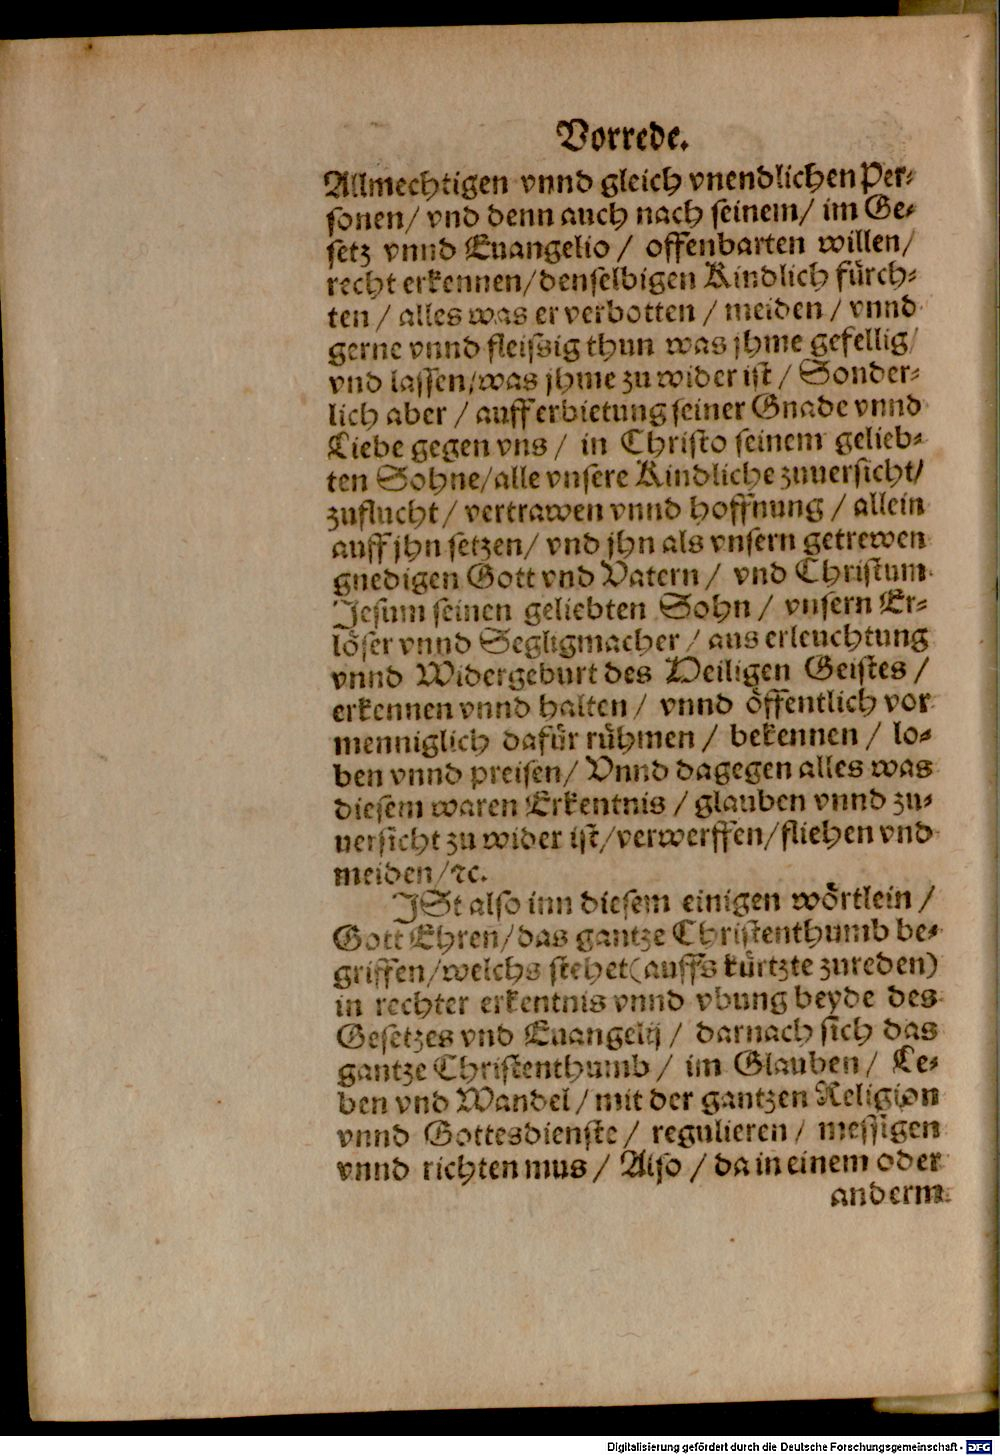 Vorrede.
Allmechtigen vnnd gleich vnendlichen Per-
sonen/ vnd denn auch nach seinem/ im Ge-
setz vnnd Euangelio / offenbarten willen/
recht erkennen/denselbigen Kindlich fürch-
ten / alles was er verbotten / meiden / vnnd
gerne vnnd fleissig thun was jhme gefellig/
vnd lassen/was jhme zu wider ist / Sonder-
lich aber / auff erbietung seiner Gnade vnnd
Liebe gegen vns / in Christo seinem gelieb-
ten Sohne/alle vnsere Kindliche zuuersicht/
zuflucht/ vertrawen vnnd hoffnung / allein
auff jhn setzen/ vnd jhn als vnsern getrewen
gnedigen Gott vnd Vatern/ vnd Christum
Jesum seinen geliebten Sohn / vnsern Er-
löser vnnd Segligmacher / aus erleuchtung
vnnd Widergeburt des Heiligen Geistes /
erkennen vnnd halten/ vnnd öffentlich vor
menniglich dafür rühmen / bekennen / lo-
ben vnnd preisen/ Vnnd dagegen alles was
diesem waren Erkentnis / glauben vnnd zu-
uersicht zu wider ist/verwerffen/fliehen vnd
meiden/ꝛc.
JSt also inn diesem einigen wörtlein /
Gott Ehren/das gantze Christenthumb be-
griffen/welchs stehet(auffs kürtzte zureden)
in rechter erkentnis vnnd vbung beyde des
Gesetzes vnd Euangelij / darnach sich das
gantze Christenthumb / im Glauben/ Le-
ben vnd Wandel/mit der gantzen Religion
vnnd Gottesdienste/ regulieren/ messigen
vnnd richten mus / Also / da in einem oder
anderm
Digitalisierung gefördert durch die Deutsche Forschungsgemeinschaft - DFG